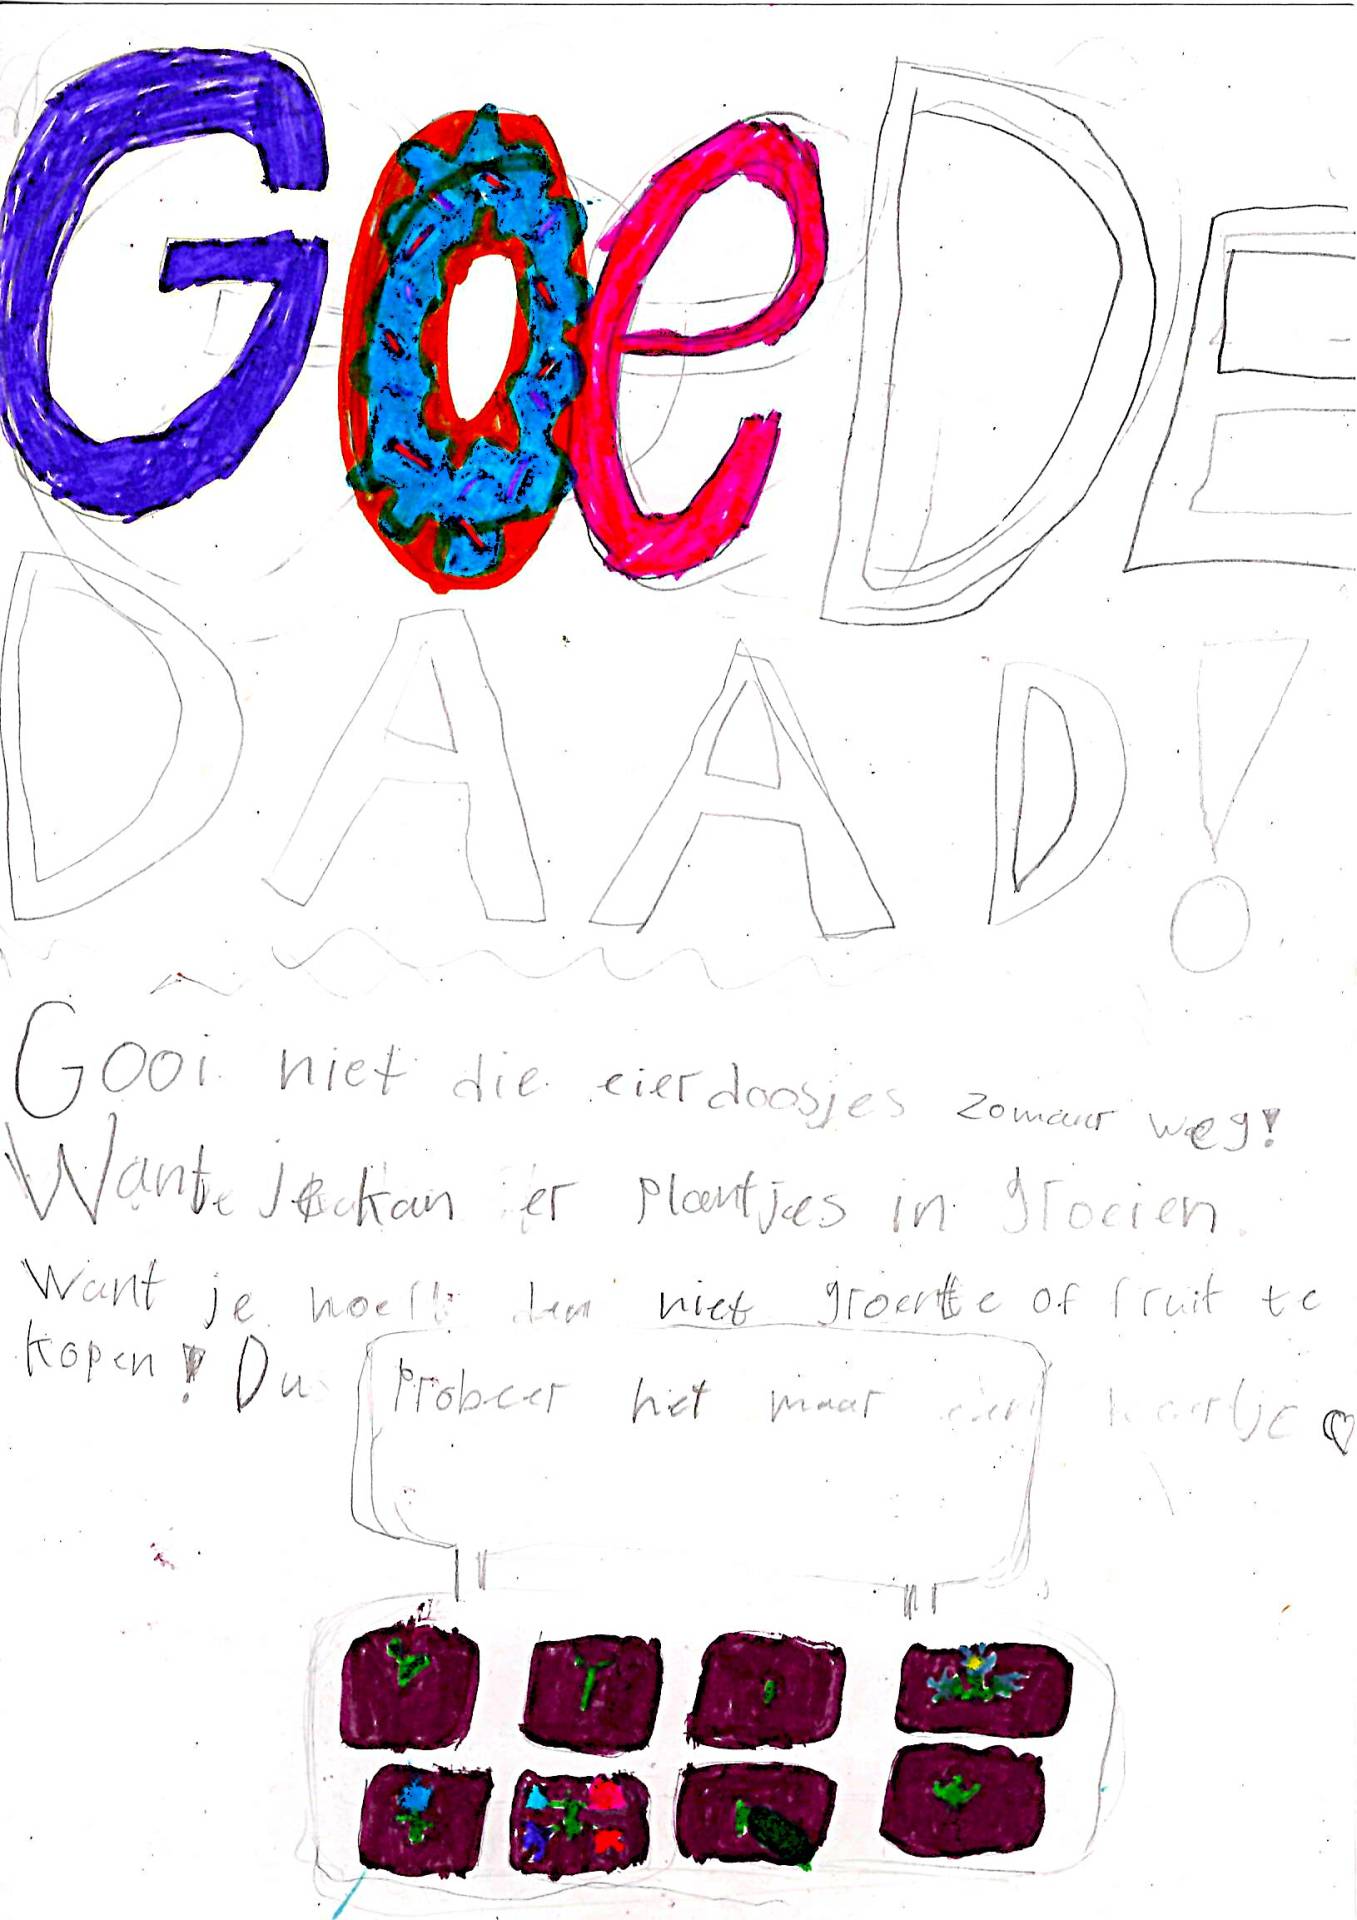 GoeDE
DAAD!
Gooi niet die eierdoosjes zomaar weg!
Want je kan er plantjes in groeien
Want je hoeft dan niet groente of fruit te
kopen! Dus probeer het maar een keertje